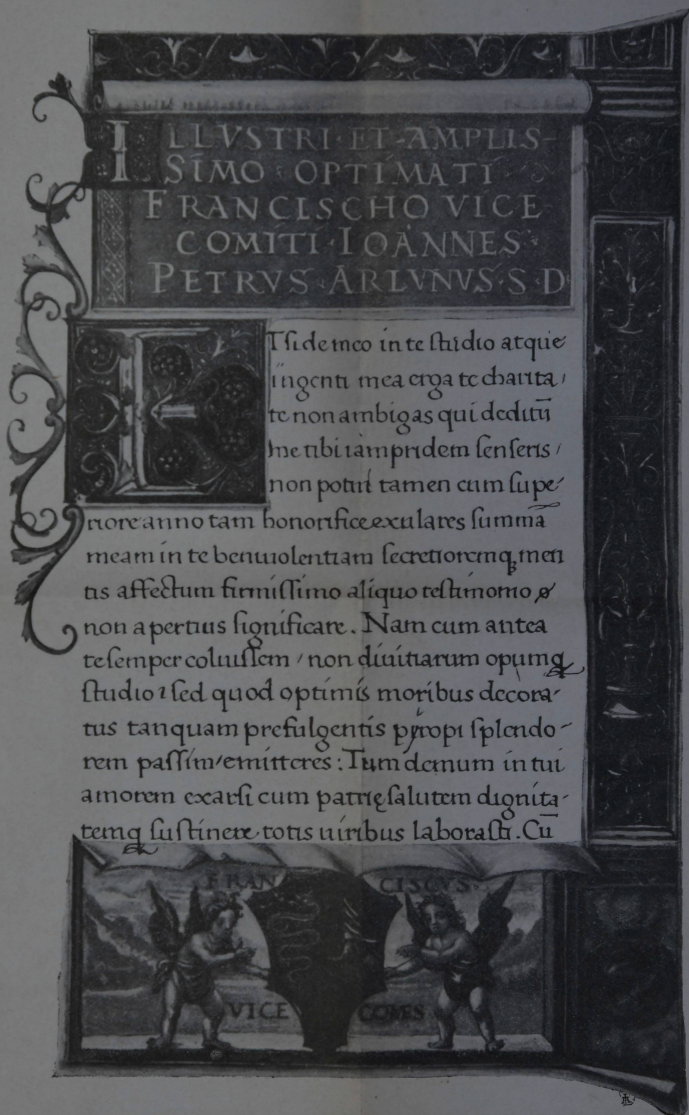 ILLVSTRI·ET·AMPLIS-
SIMO·OPTIMATI
FRANCISCHO VICE
COMITI·IOANNES
PETRVS·ARLVNVS·S·D
ETsi de meo in te studio atque
ingenti mea erga te charita,
te non ambigas qui deditū
me tibi iampridem senseris,
non potui tamen cum supe-
riore anno tam honorifice exulares summā
meam in te beniuolentiam secretioremq; men
tis affectum firmissimo aliquo testimonio
non apertius significare. Nam cum antea
te semper coluissem, non diuitiarum opumq;
studio, sed quod optimis moribus decora-
tus tanquam prefulgentis pyropi splendo-
rem passim emitteres: Tum demum in tui
amorem exarsi cum patrię salutem dignita-
temq; sustinere totis uiribus laborasti. Cū
FRAN CISCVS
VICE COMES